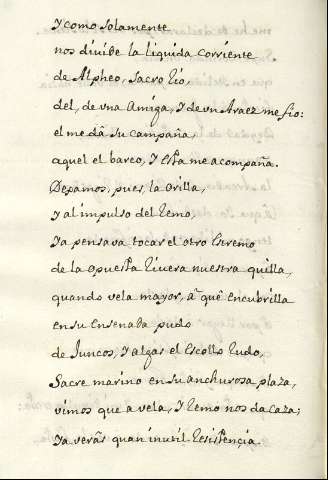 Y como solamente
nos divide la liquida corriente
de Alpheo, Sacro Rio,
del, de vna Amiga, Y de vn Araez me fio:
el me dà su campaña,
aquel el barco, Y esta me acompaña.
Dexamos, pues, la Orilla,
Y al impulso del Remo,
Ya pensava tocar el otro Estremo
de la Opuesta Rivera nuestra quilla,
quando vela mayor, à què encubrilla
en su Ensenada pudo
de Juncos, Y algas el Escollo Rudo,
Sacre marino en su anchurosa plaza,
vimos que a vela, Y Remo nos da Caza;
Ya veràs quan inutil Resistençia.